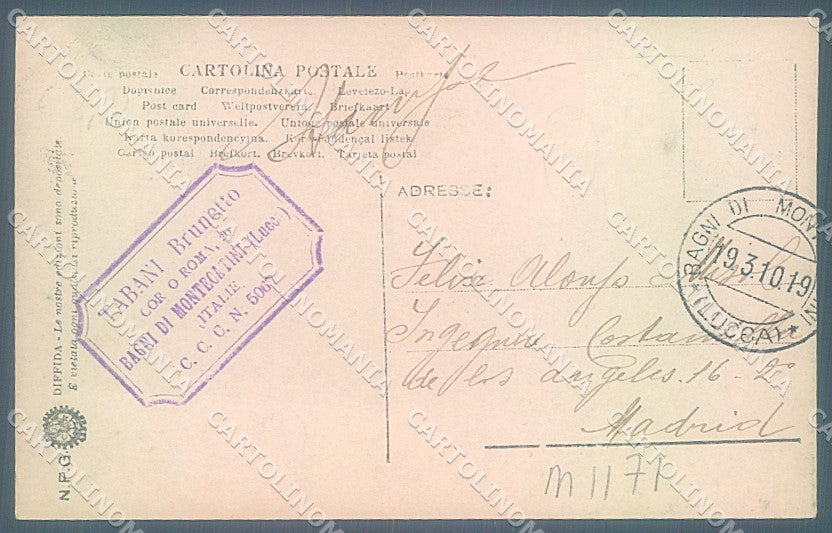 Carte postale CARTOLINA POSTALE Postkarte
Dopisnice Correspondenzkarte. Levelezo-Lap
Post card Weltpostverein. Briefkaart
Union postale universelle. Union postale universale
Karta korespondencyjna. Korespondencal listek
Cartao postal Brefkort. Brevkort. Tarjeta postal
DIFFIDA - Le nostre edizioni sono depositate
E vietata ogni riproduzione
N.P.G.
TABANI Brunetto
CORSO ROMA,
BAGNI DI MONTECATINI-(Lucca)
ITALIE
C. C. C. N. 5067
ADRESSE:
BAGNI DI MON INI
19 3 10.19
*(LUCCA)*
Felix Alonso
Costanilla
de los angeles. 16 - 2º
Madrid
M 1171
CARTOLINOMANIA